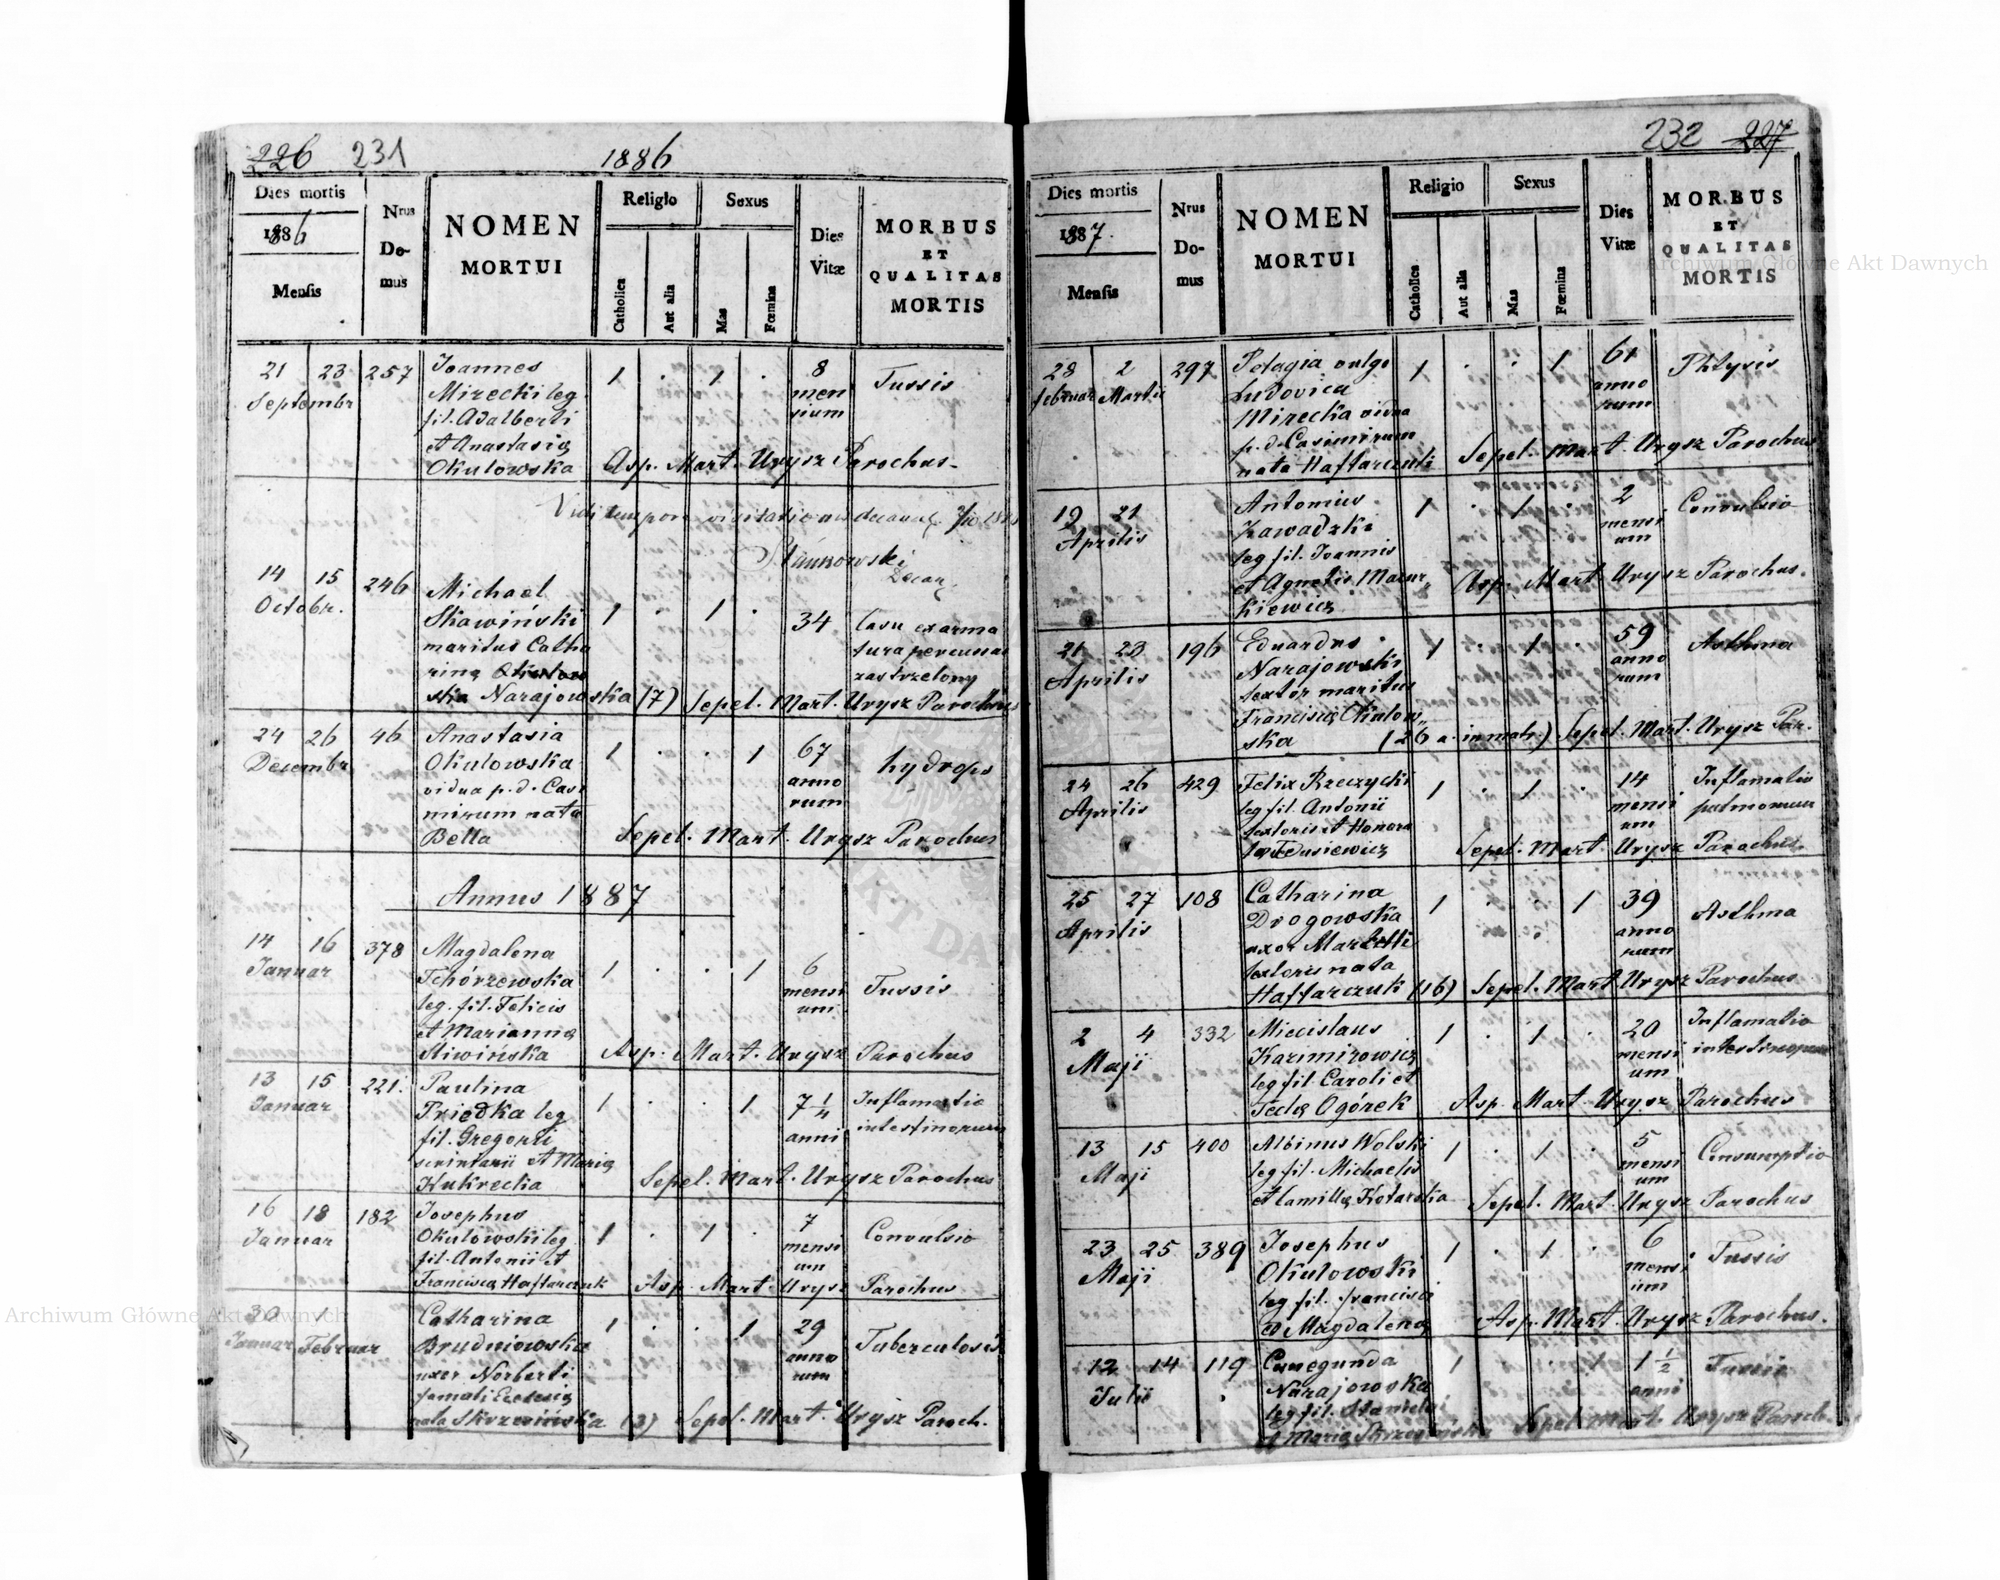 226 231 1886
Dies mortis
1886
Mensis
Nrus
Do-
mus
NOMEN
MORTUI
Religio
Catholica
Aut alia
Sexus
Mas
Fœmina
Dies
Vitæ
MORBUS
ET
QUALITAS
MORTIS
21 23 257 Joannes 1 . 1 . 8 Tussis
Septembr Mirecki leg men
fil. Adalberti sium
et Anastasię
Okulowska Asp. Mart. Urysz Parochus
Vidi tempore visitationis decanal.
Decan
14 15 246 Michael
Octobr. Skawiński 1 . 1 . 34 Casu ex arma
maritus Catha tura percussus
rinę zastrzelony
Narajowska (7) Sepel. Mart. Urysz Parochus
24 26 46 Anastasia 1 . . 1 67 hydrops
Decembr Okulowska anno
vidua p. d. Casi rum
mirum nata
Bella Sepel. Mart. Urysz Parochus
Annus 1887
14 16 378 Magdalena 1 . . 1 6 Tussis
Januar Tchórzewska mensi
leg. fil. Felicis um
et Mariannę
Sliwińska Asp. Mart. Urysz Parochus
13 15 221. Paulina 1 . . 1 7 1/4 Inflamatio
Januar Priedka leg anni intestinorum
fil. Gregorii
et Marię
Kukrecka Sepel. Mart. Urysz Parochus
16 18 182 Josephus 1 . 1 . 7 Convulsio
Januar Okulowski leg mensi
fil. Antonii et um
Franciscę Haftarczuk Asp. Mart. Urysz Parochus
30 1 Catharina 1 . . 1 29 Tuberculosis
Januar Februar Brudniowska anno
uxor Norberti rum
famali Ecclesię
nata Skrzewińska (3) Sepel. Mart. Urysz Paroch.
232 227
Dies mortis
1887.
Mensis
Nrus
Do-
mus
NOMEN
MORTUI
Religio
Catholica
Aut alia
Sexus
Mas
Fœmina
Dies
Vitæ
MORBUS
ET
QUALITAS
MORTIS
28 2 297 Pelagia vulgo 1 . . 1 61 Phtysis
februar Martii Ludovica anno
Mirecka vidua rum
p. d. Casimirum
nata Haftarczuk Sepel. Mart. Urysz Parochus
19 21 Antonius 1 . 1 . 2 Convulsio
Aprilis Zawadzki mensi
leg fil. Joannis um
et Agnetis Mazur„ Asp. Mart Urysz Parochus.
kiewicz
21 23 196 Eduardus 1 . 1 . 59 Asthma
Aprilis Narajowski anno
textor maritus rum
Franciscę Okulow„
ska (26 a. in matr.) Sepel. Mart. Urysz Par.
24 26 429 Felix Rzeczycki 1 . 1 . 14 Inflamatio
Aprilis leg fil. Antonii mensi pulmonum
textoris et Honora um
tę Fedusiewicz Sepel. Mart. Urysz Parochus
25 27 108 Catharina 1 . . 1 39 Asthma
Aprilis Drogowska anno
uxor Marcelli rum
textoris nata
Haftarczuk (16) Sepel. Mart Urysz Parochus
2 4 332 Miecislaus 1 . 1 . 20 Inflamatio
Maji Kazimirowicz mensi intestinorum
leg fil. Caroli et um
Teclę Ogórek Asp. Mart. Urysz Parochus
13 15 400 Albinus Wolski 1 . 1 . 5 Consumptio
Maji leg fil. Michaelis mensi
et Camillę Kotarska um
Sepel. Mart. Urysz Parochus
23 25 389 Josephus 1 . 1 . 6 Tussis
Maji Okulowski mensi
leg fil. Francisci um
et Magdalenę Asp. Mart. Urysz Parochus.
12 14 119 Cunegunda 1 . . 1 1 1/2 Tussis
Julii Narajowska anni
leg fil. Stanislai
et Marię Skrzewińska Sepel Mart. Urysz Paroch.
Archiwum Główne Akt Dawnych
Archiwum Główne Akt Dawnych